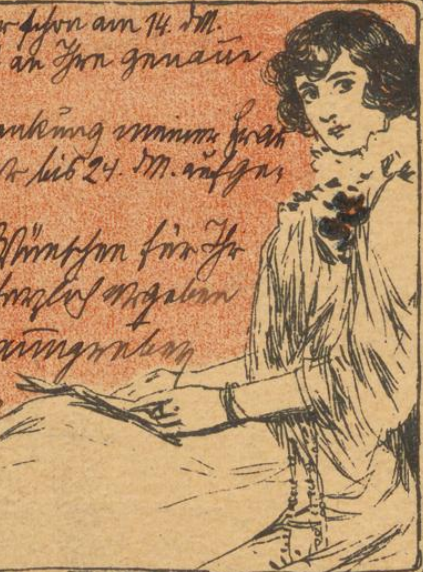 schon am 14. dM.
an Ihre genaue
meiner Frau
bis 24. dM. aufge-
Wünschen für Ihr
herzlich ergeben